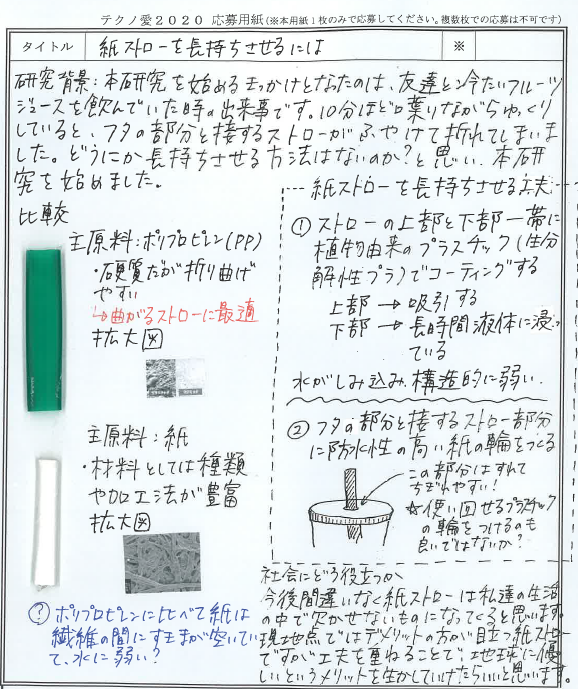 テクノ愛2020 応募用紙(※本用紙1枚のみで応募してください。複数枚での応募は不可です)
タイトル 紙ストローを長持ちさせるには ※
研究背景:本研究を始めるきっかけとなったのは、友達と冷たいフルーツ
ジュースを飲んでいた時の出来事です。10分ほど口葉りながらゆっくり
していると、フタの部分と接するストローがふやけて折れてしまいま
した。どうにか長持ちさせる方法はないのか?と思い、本研
究を始めました。
比較
主原料:ポリプロピレン(PP)
・硬質だが折り曲げ
やすい
↳曲がるストローに最適
拡大図
主原料:紙
・材料としては種類
や加工法が豊富
拡大図
? ポリプロピレンに比べて紙は
繊維の間にすきまが空いてい
て、水に弱い?
紙ストローを長持ちさせる工夫
① ストローの上部と下部一帯に
植物由来のプラスチック(生分
解性プラ)でコーティングする
上部→吸引する
下部→長時間液体に浸っ
ている
水がしみ込み、構造的に弱い.
② フタの部分と接するストロー部分
に防水性の高い紙の輪をつくる
この部分はすれて
ちぎれやすい!
☆使い回せるプラスチック
の輪をつけるのも
良いではないか?
社会にどう役立つか
今後間違いなく紙ストローは私達の生活
の中で欠かせないものになってくると思います。
現地点ではデメリットの方が目立つ紙ストロー
ですが工夫を重ねることで、地球に優し
いというメリットを生かしていけたらいいと思います。